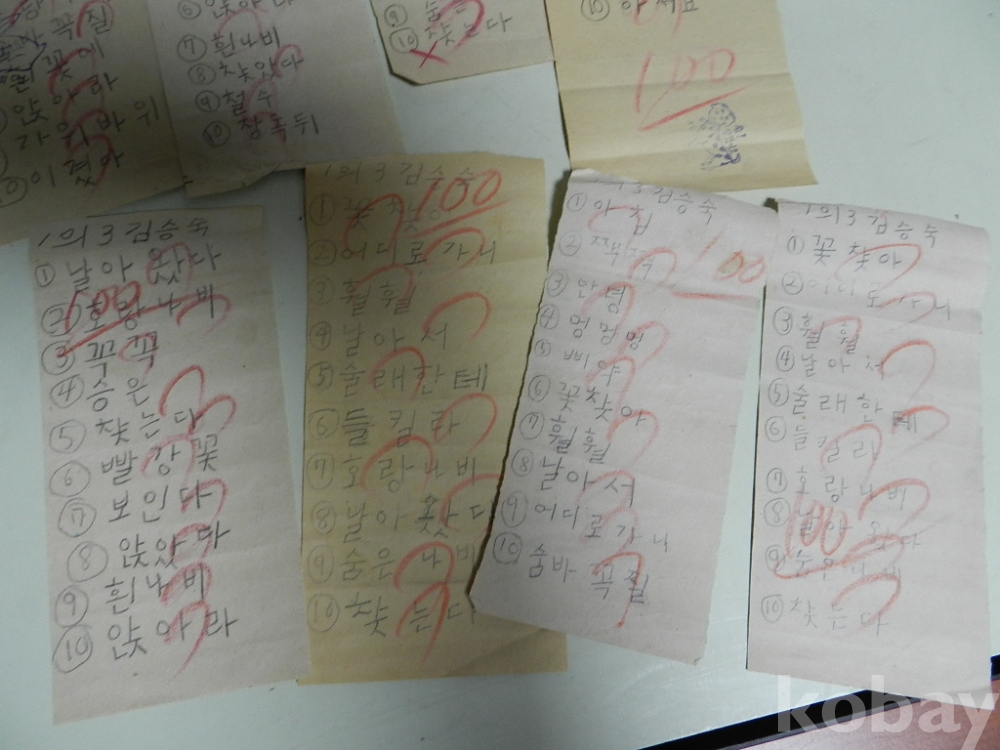 질
꽃에
앉아라
가위바위
이겼다
⑦ 흰나비
⑧ 찾았다
⑨ 철수
⑩ 장독뒤
⑨
⑩ 찾는다
⑮ 아저요
100
1의 3 김승숙
① 날아왔다
100
② 호랑나비
③ 꼭꼭
④ 숨은
⑤ 찾는다
⑥ 빨강꽃
⑦ 보인다
⑧ 앉았다
⑨ 흰나비
⑩ 앉아라
1의 3 김승숙
100
① 꽃찾아
② 어디로가니
③ 훨훨
④ 날아서
⑤ 술래한테
⑥ 들킬라
⑦ 호랑나비
⑧ 날아왔다
⑨ 숨은나비
⑩ 찾는다
1의 3 김승숙
① 아침
② 짹짹
100
③ 안녕
④ 멍멍멍
⑤ 삐약
⑥ 꽃찾아
⑦ 훨훨
⑧ 날아서
⑨ 어디로가니
⑩ 숨바꼭질
1의 3 김승숙
① 꽃찾아
② 어디로가니
③ 훨훨
④ 날아서
⑤ 술래한테
⑥ 들킬라
⑦ 호랑나비
⑧ 날아왔다
100
⑨ 숨은나비
⑩ 찾는다
kobay